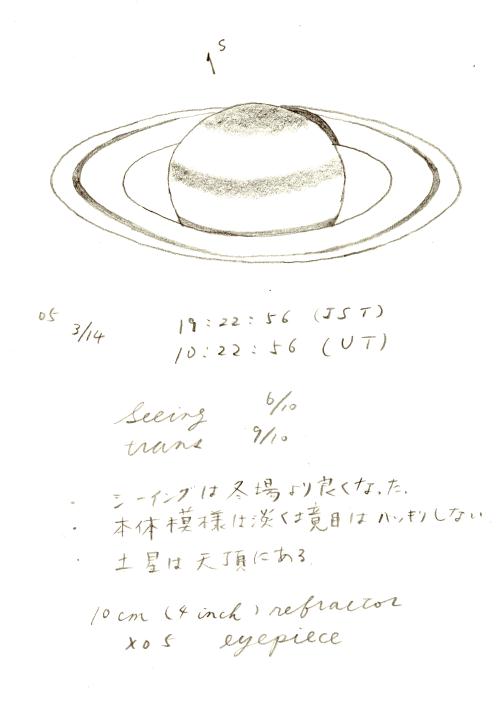 S
05 3/14 19:22:56 (JST)
10:22:56 (UT)
Seeing 6/10
trans 9/10
・ シーイングは冬場より良くなった.
・ 本体模様は淡く境目はハッキリしない
・ 土星は天頂にある
10cm (4 inch) refractor
XO 5 eyepiece